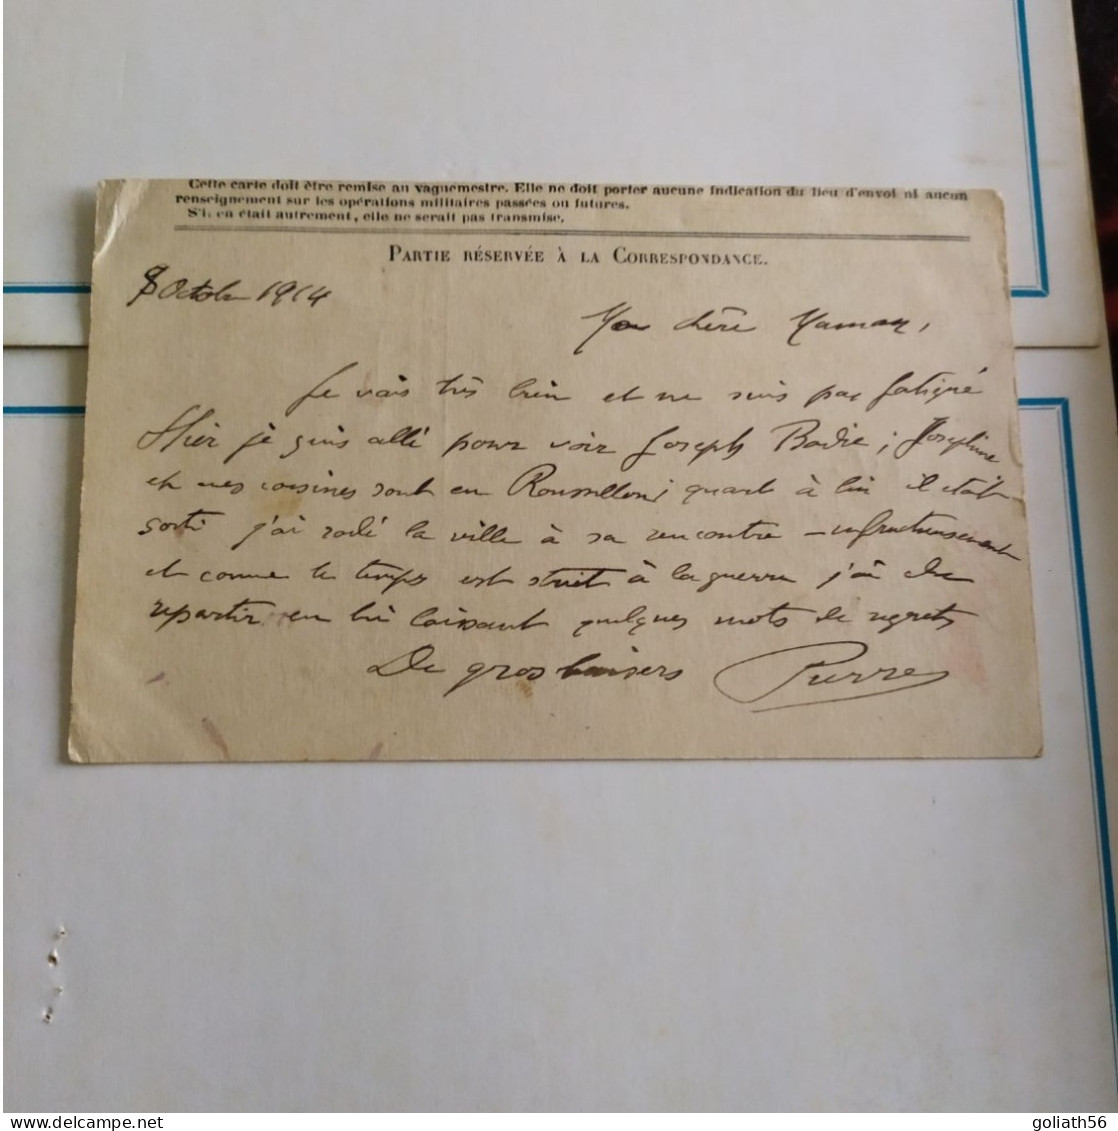 Cette carte doit être remise au vaguemestre. Elle ne doit porter aucune indication du lieu d'envoi ni aucun
renseignement sur les opérations militaires passées ou futures.
S'il en était autrement, elle ne serait pas transmise.
PARTIE RÉSERVÉE À LA CORRESPONDANCE.
Octobre 1914
Ma chère Maman,
Je vais très bien et ne suis pas fatigué
Hier je suis allé pour voir Joseph Badie ; Joséphine
et mes cousines sont en Roussillon ; quant à lui il était
sorti j'ai rodé la ville à sa rencontre - infructueusement
et comme le temps est strict à la guerre j'ai du
repartir en lui laissant quelques mots de regrets
De gros baisers Pierre
goliath56